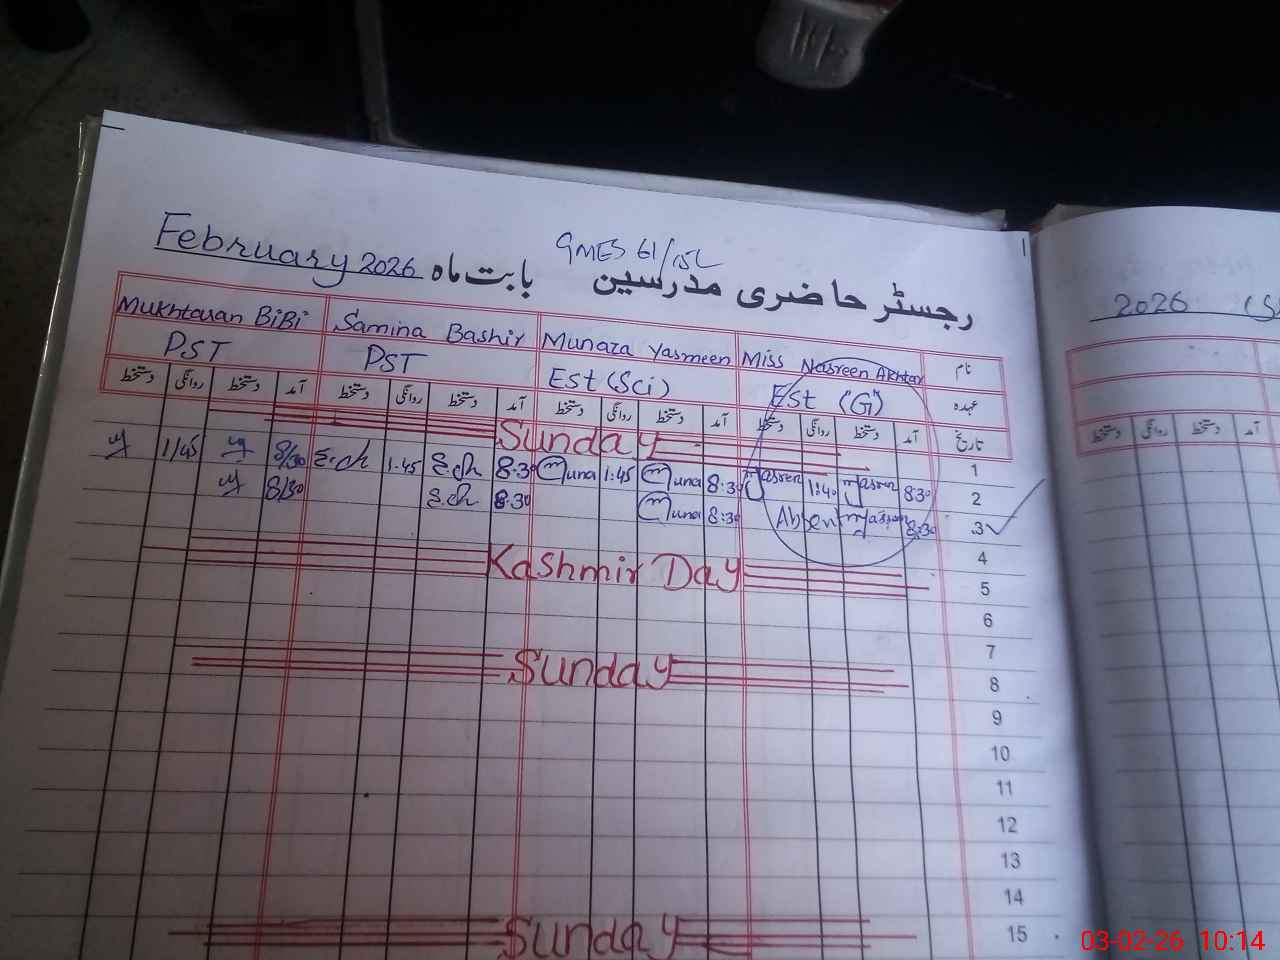 GMES 61/15L
February 2026 رجسٹر حاضری مدرسین بابت ماہ
2026
Mukhtaran BiBi Samina Bashir Munaza Yasmeen Miss Nasreen Akhtar نام
PST PST Est (Sci) Est (G) عہدہ
دستخط روانگی دستخط آمد دستخط روانگی دستخط آمد دستخط روانگی دستخط آمد دستخط روانگی دستخط آمد تاریخ
دستخط روانگی دستخط آمد
Sunday 1
1/45 8/30 E.ch 1.45 E.ch 8.30 Muna 1:45 Muna 8:30 Nasreen 1:40 Nasreen 8:30 2
8/30 E.ch 8.30 Muna 8:30 Absent Nasreen 8:30 3
4
Kashmir Day 5
6
7
Sunday 8
9
10
11
12
13
14
Sunday 15
03-02-26 10:14